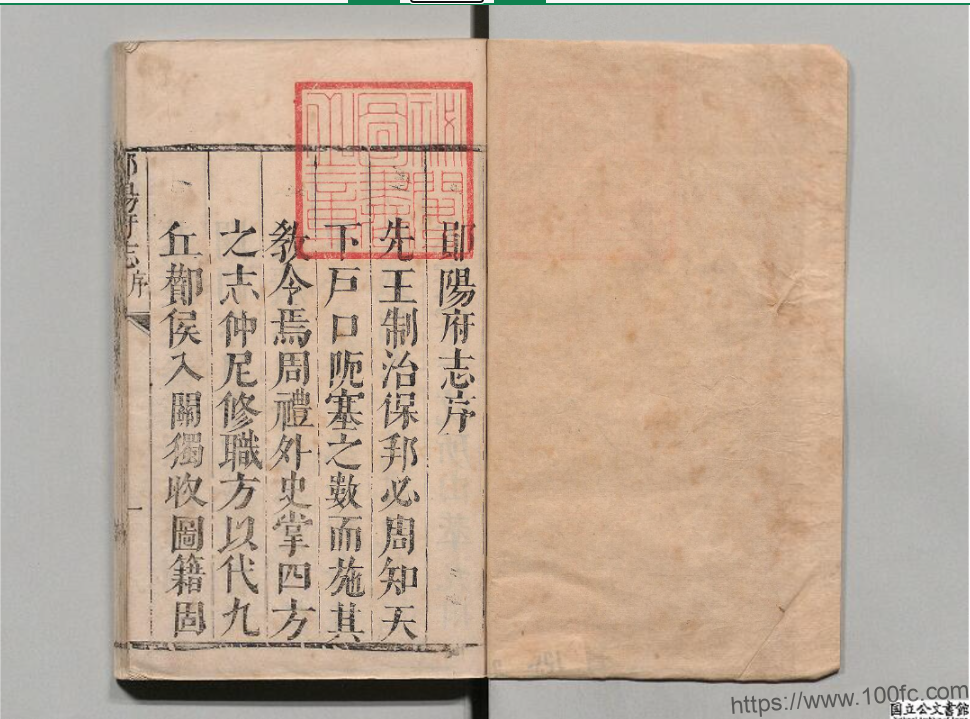 郧陽府志序
先王制治保邦必周知天
下戸口阨塞之數而施其
敎令焉周禮外史掌四方
之志仲尼修職方以代九
丘酇侯入關獨收圖籍固
郧陽府志 序
一
https://www.100fc.com
国立公文書館